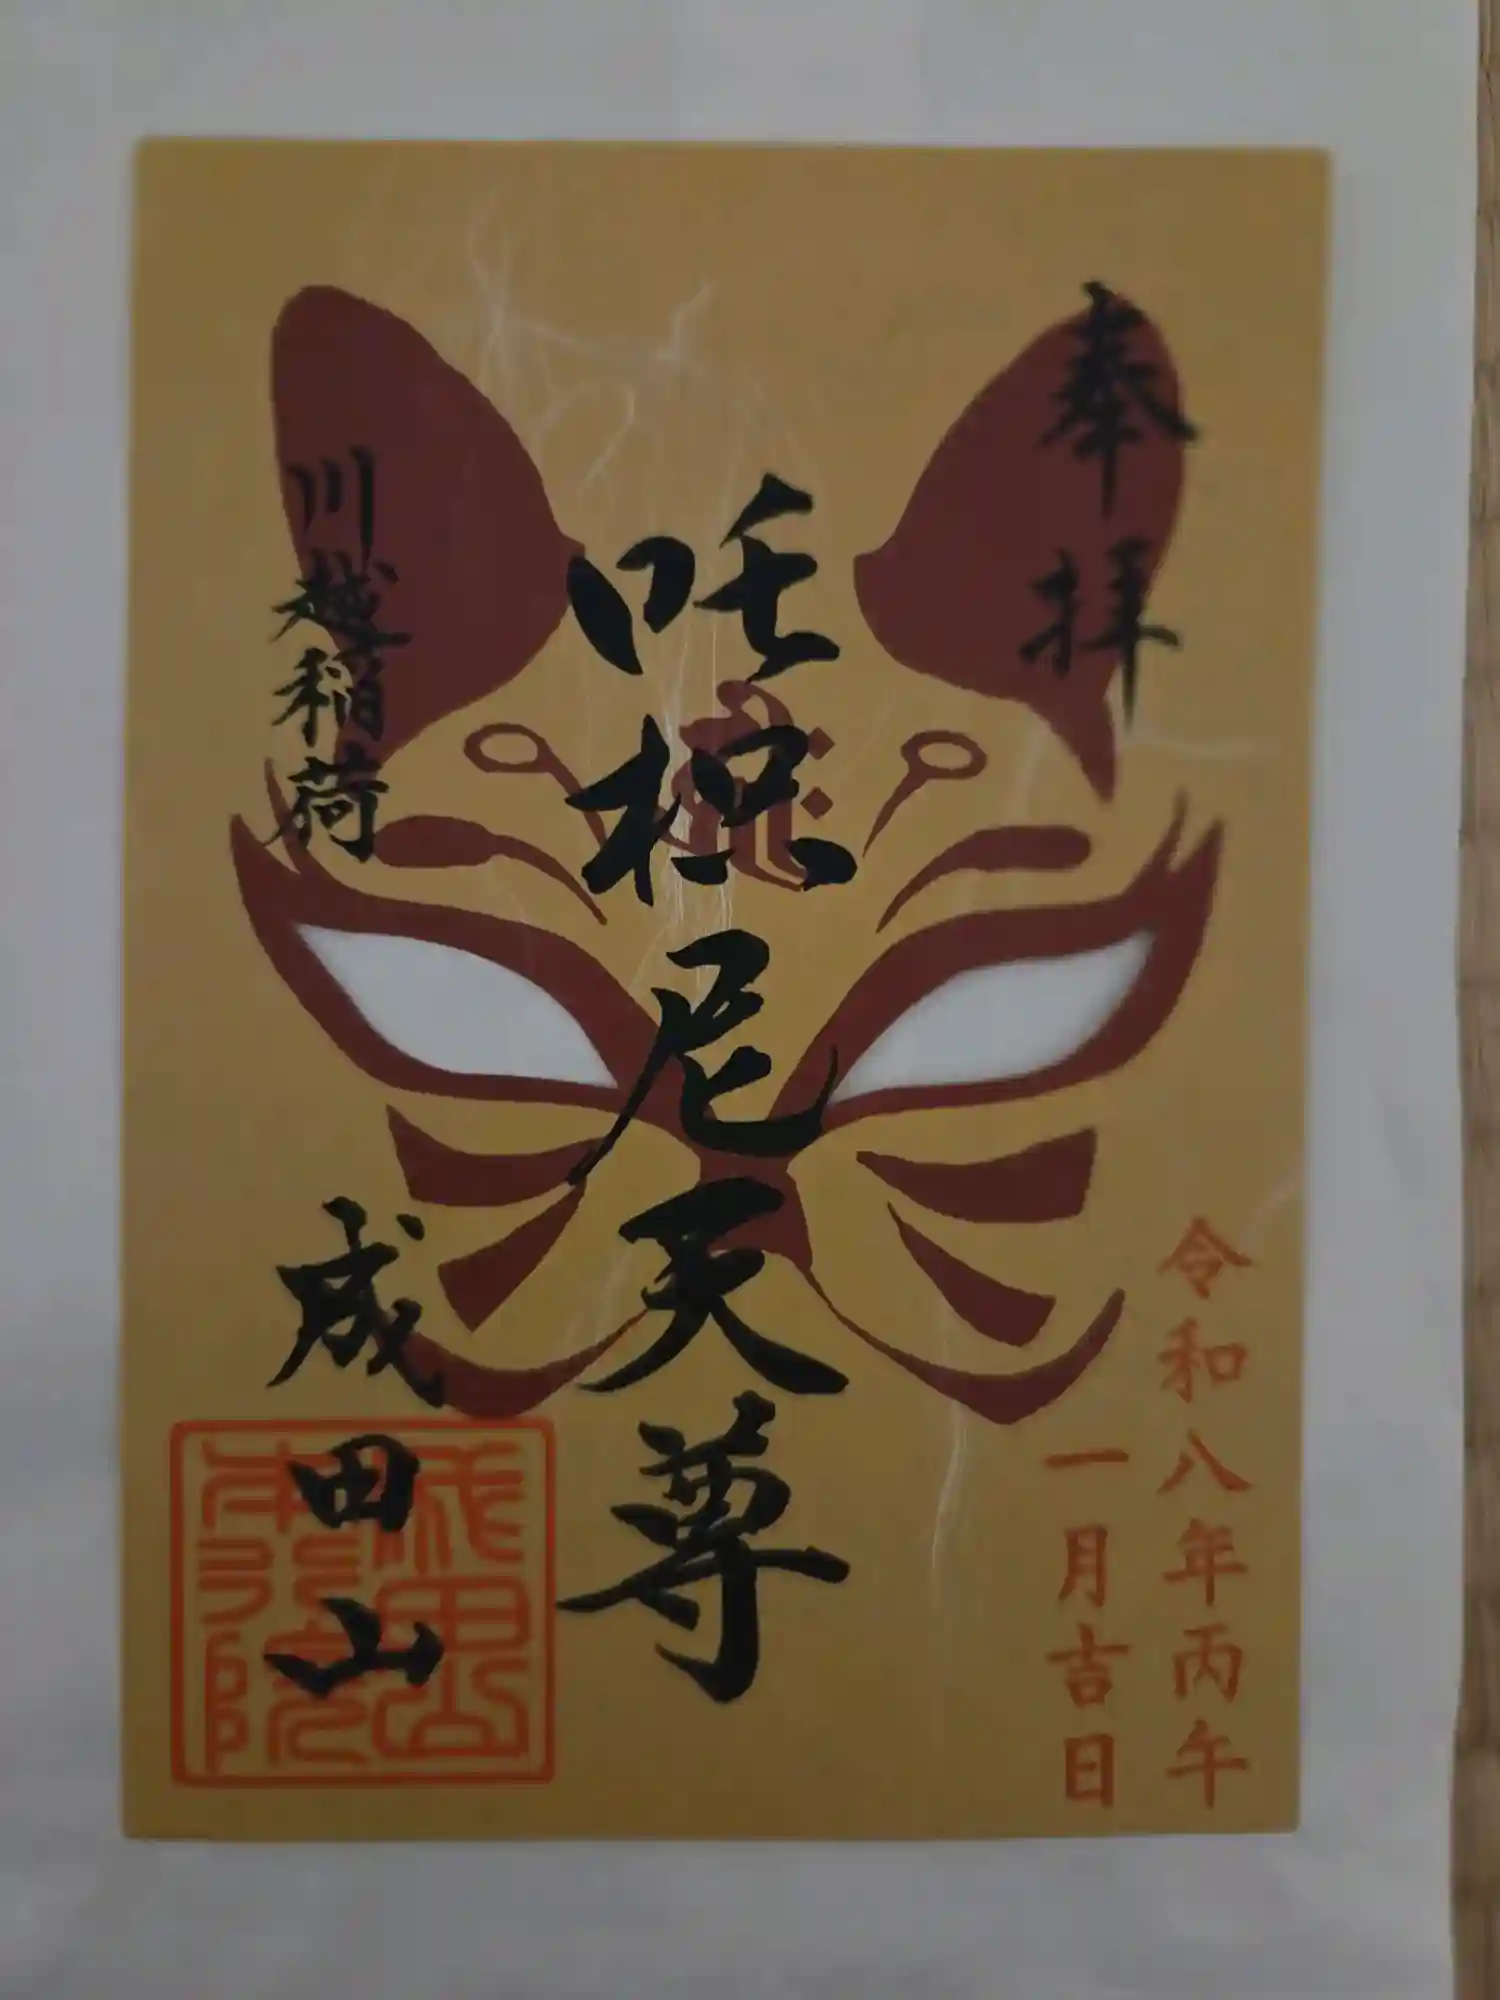 奉拝
令和八年丙午
一月吉日
吒枳尼天尊
川越稲荷
成田山